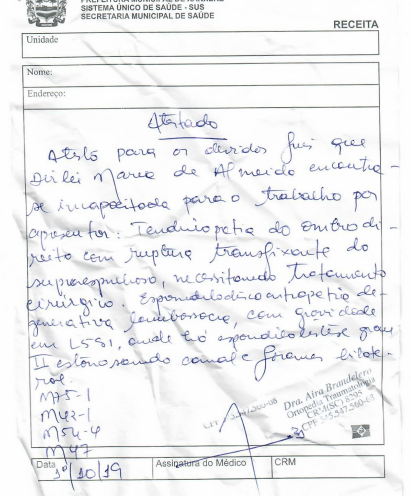 SISTEMA ÚNICO DE SAÚDE - SUS
SECRETARIA MUNICIPAL DE SAÚDE
RECEITA
Unidade
Nome:
Endereço:
Atestado
Atesto para os devidos fins que
Dirlei Maria de Almeida encontra-
se incapacitada para o trabalho por
apresentar: Tendinopatia do ombro di-
reito com ruptura transfixante do
supraespinhoso, necessitando tratamento
cirúrgico. Espondilodiscoartropatia de-
generativa lombossacra, com gravidade
em L5S1, onde há espondilolistese grau
II estenosando canal e forames bilate-
ral.
M75-1
M42-1
M54-4
M47
Dra. Aira Brandelero
Ortopedia Traumatologia
CRM(SC) 8595
Data 1º/10/19
Assinatura do Médico
CRM